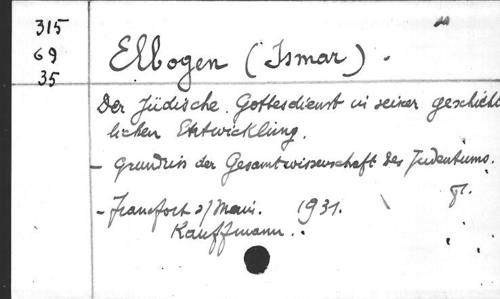 315
69
35
Elbogen (Ismar).
Der Jüdische Gottesdienst in seiner geschicht
lichen Entwicklung.
- Grundriss der Gesamtwissenschaft des Judentums.
- Francfort s/ Main. 1931.
Kauffmann.